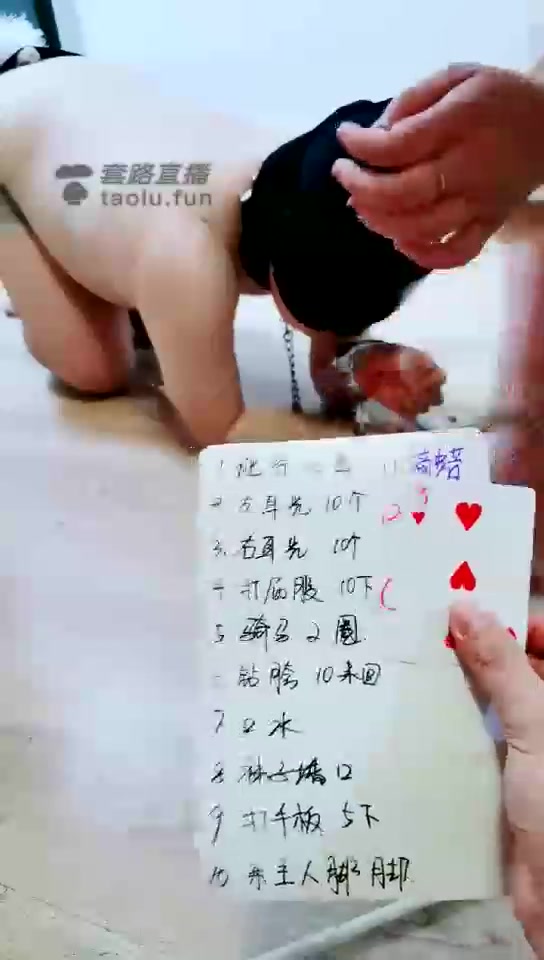 套路直播
taolu.fun
1 爬行 11 滴蜡
2 左耳光 10个 12
3. 右耳光 10个
4 打屁股 10下
5 骑马 2圈
钻胯 10来回
7 口水
8 12
9 打手板 5下
10 主人脚